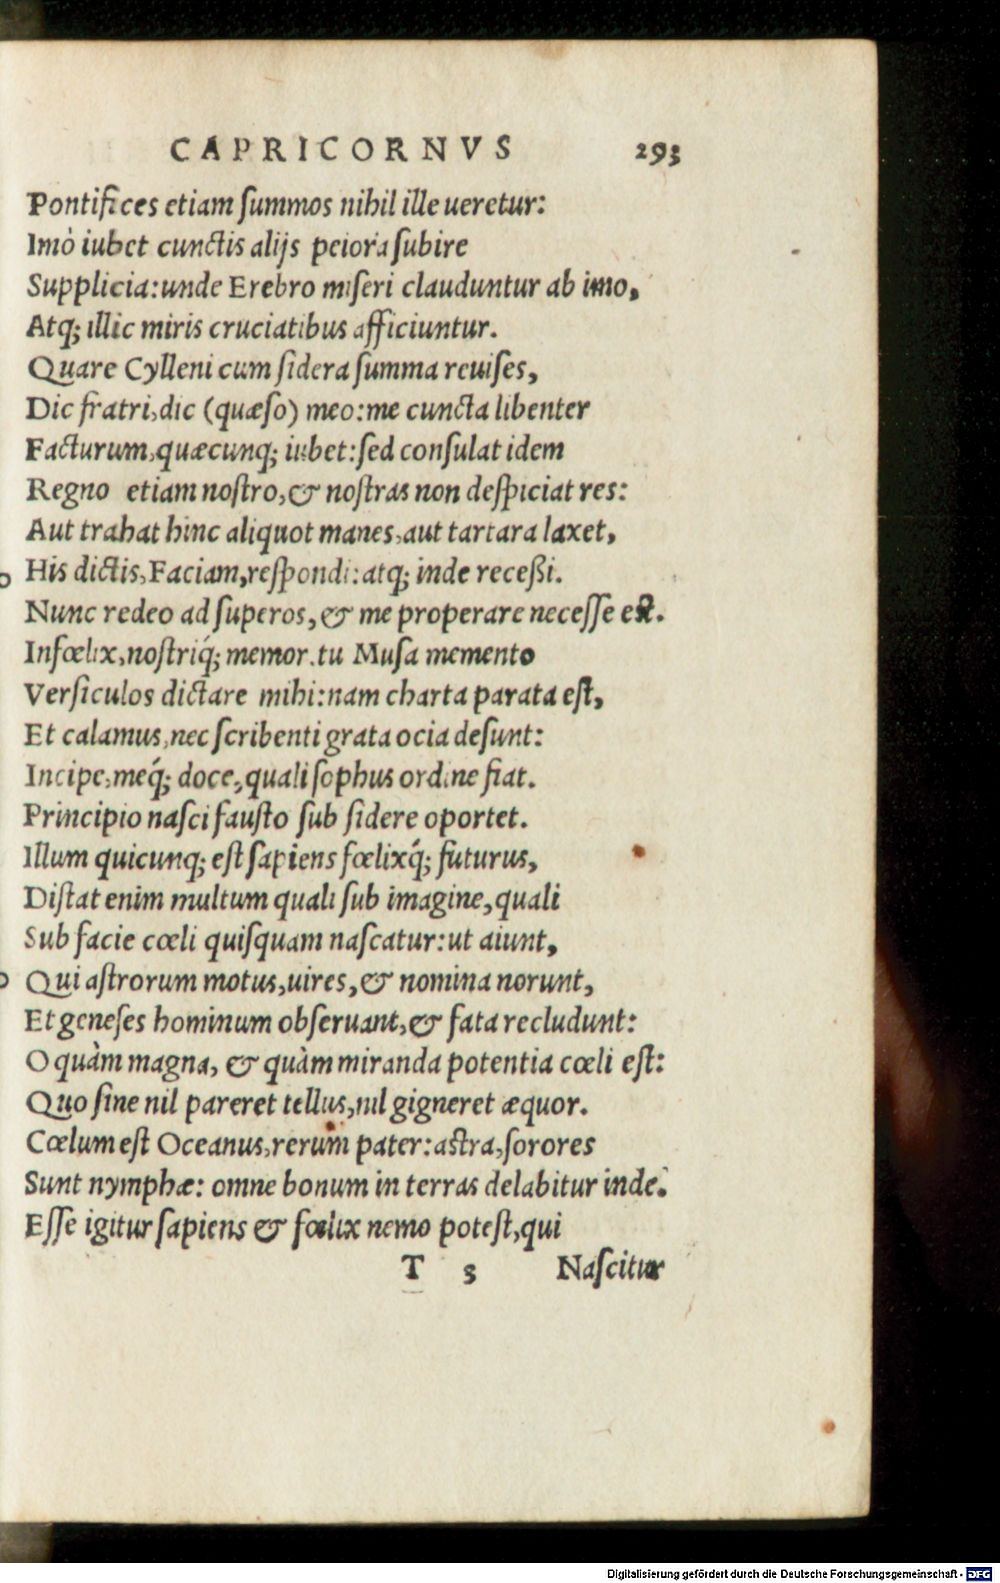 CAPRICORNVS 293
Pontifices etiam ſummos nihil ille ueretur:
Imò iubet cunctis alijs peiora ſubire
Supplicia: unde Erebro miſeri clauduntur ab imo,
Atq; illic miris cruciatibus afficiuntur.
Quare Cylleni cum ſidera ſumma reuiſes,
Dic fratri, dic (quæſo) meo: me cuncta libenter
Facturum, quæcunq; iubet: ſed conſulat idem
Regno etiam noſtro, & noſtras non deſpiciat res:
Aut trahat hinc aliquot manes, aut tartara laxet,
His dictis, Faciam, reſpondi: atq; inde receßi.
Nunc redeo ad ſuperos, & me properare neceſſe eſt.
Infœlix, noſtriq́; memor. tu Muſa memento
Verſiculos dictare mihi: nam charta parata eſt,
Et calamus, nec ſcribenti grata ocia deſunt:
Incipe, meq́; doce, quali ſophus ordine fiat.
Principio naſci fauſto ſub ſidere oportet.
Illum quicunq; eſt ſapiens fœlixq́; futurus,
Diſtat enim multum quali ſub imagine, quali
Sub facie cœli quiſquam naſcatur: ut aiunt,
Qui aſtrorum motus, uires, & nomina norunt,
Et geneſes hominum obſeruant, & fata recludunt:
O quàm magna, & quàm miranda potentia cœli eſt:
Quo ſine nil pareret tellus, nil gigneret æquor.
Cœlum eſt Oceanus, rerum pater: aſtra, ſorores
Sunt nymphæ: omne bonum in terras delabitur inde.
Eſſe igitur ſapiens & fœlix nemo poteſt, qui
T 3 Naſcitur
Digitalisierung gefördert durch die Deutsche Forschungsgemeinschaft - DFG